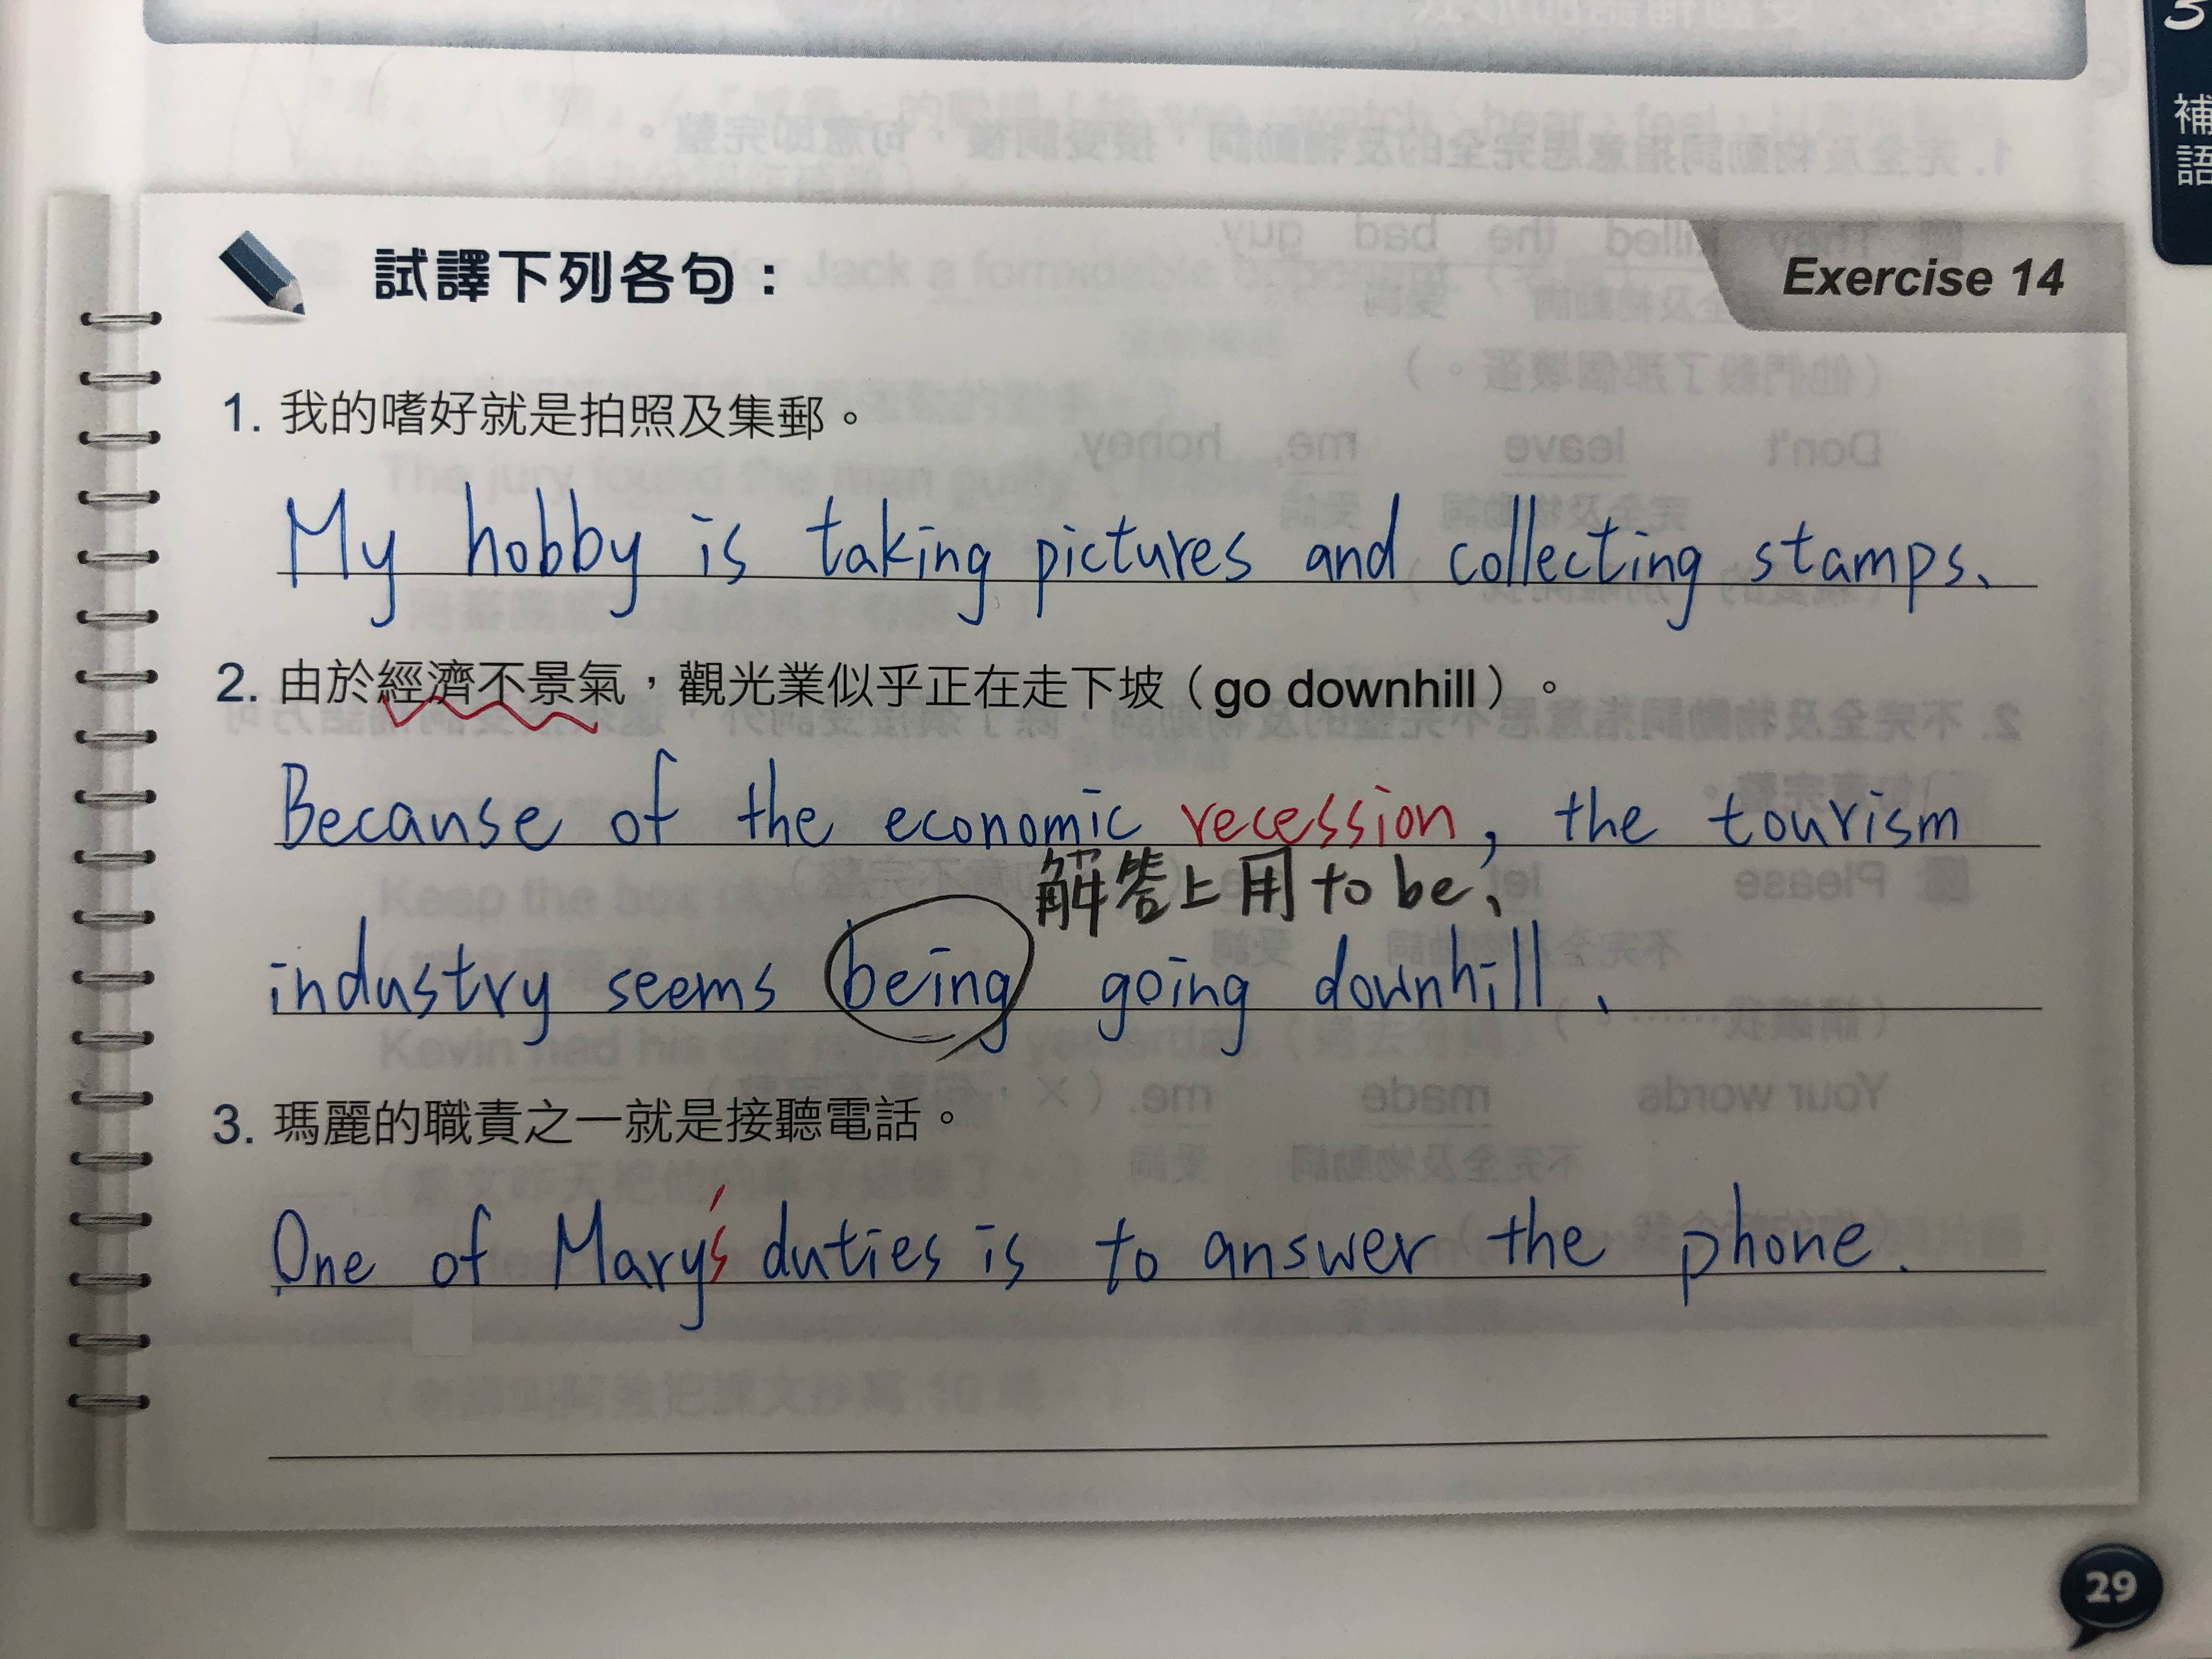 補語
試譯下列各句：
Exercise 14
1. 我的嗜好就是拍照及集郵。
My hobby is taking pictures and collecting stamps.
2. 由於經濟不景氣，觀光業似乎正在走下坡（go downhill）。
Because of the economic recession, the tourism
解答上用 to be.
industry seems being going downhill.
3. 瑪麗的職責之一就是接聽電話。
One of Mary's duties is to answer the phone.
29